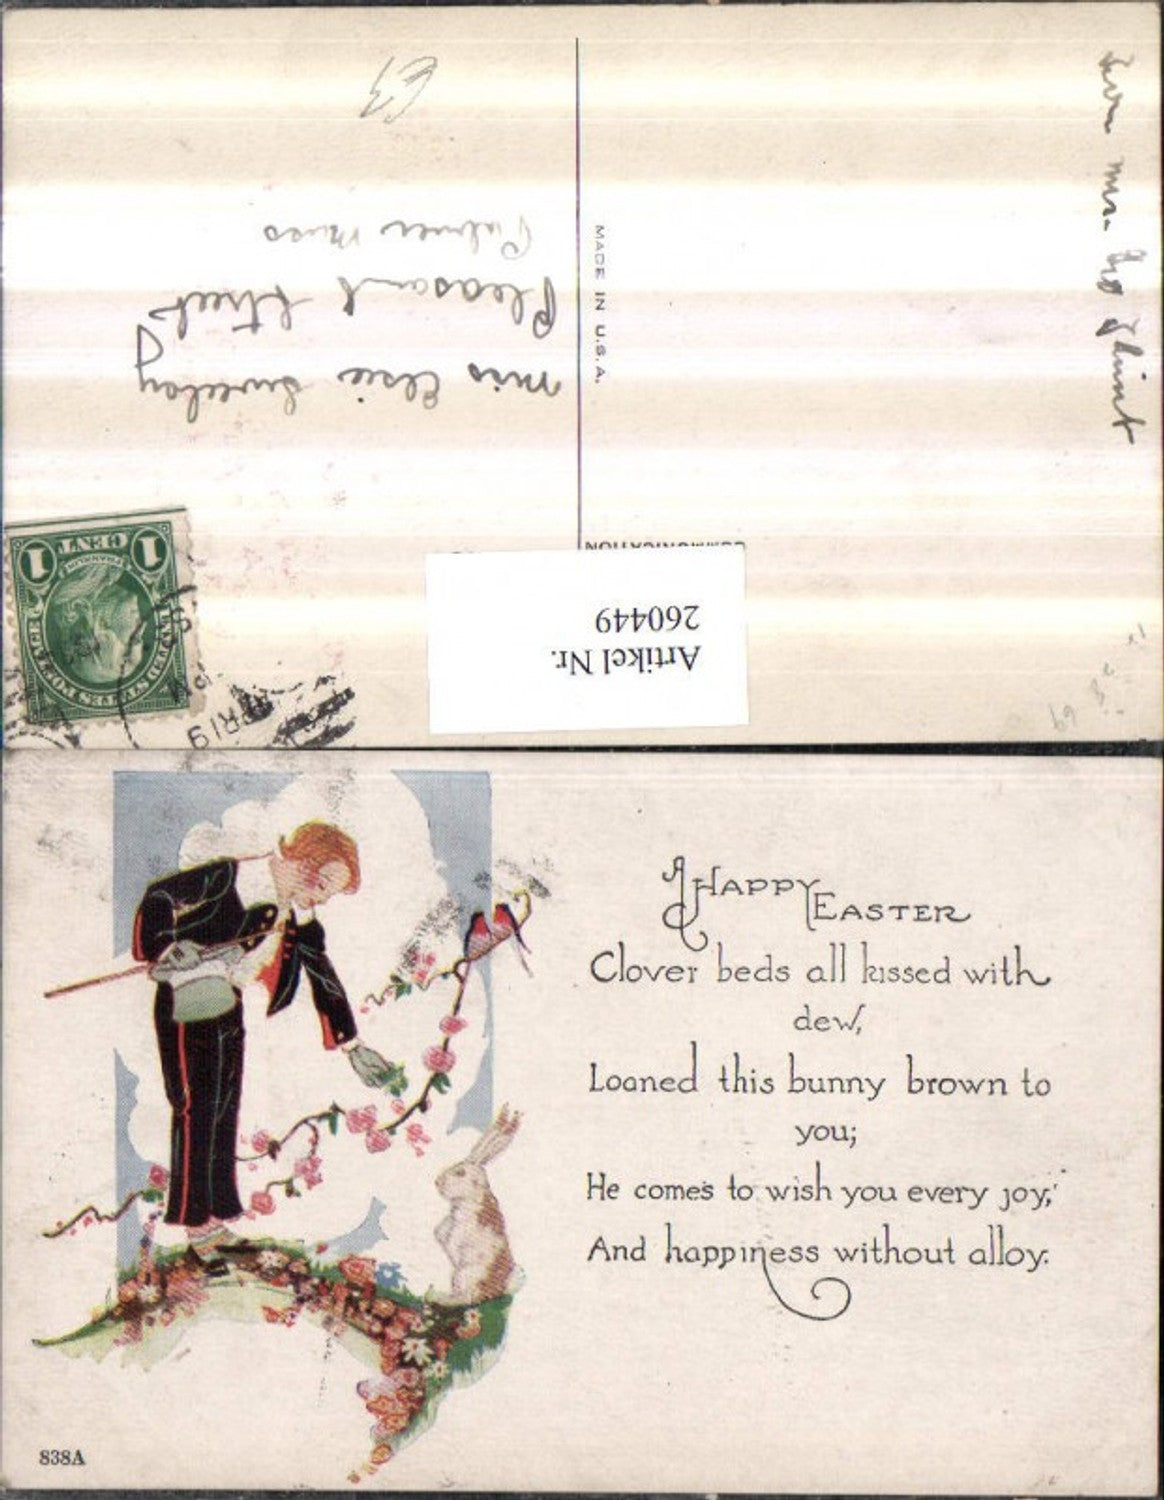 Miss Elsie
Pleasant Street
Palmer Mass
MADE IN U.S.A.
COMMUNICATION
Artikel Nr.
260449
1 CENT 1
FRANKLIN
UNITED STATES POSTAGE
APR 19
A HAPPY EASTER
Clover beds all kissed with
dew,
Loaned this bunny brown to
you;
He comes to wish you every joy,
And happiness without alloy.
838A